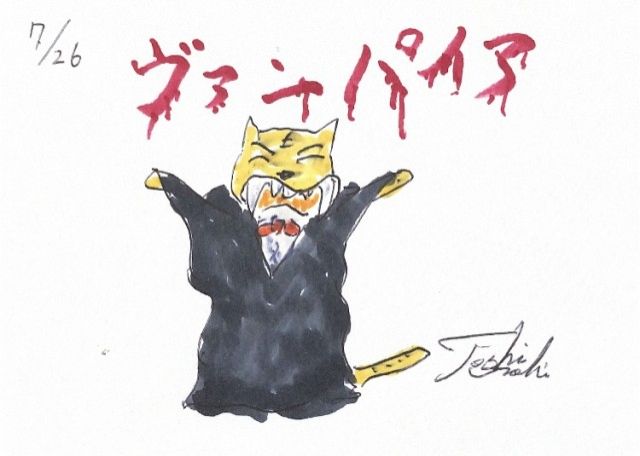 7/26
ヴァンパイア